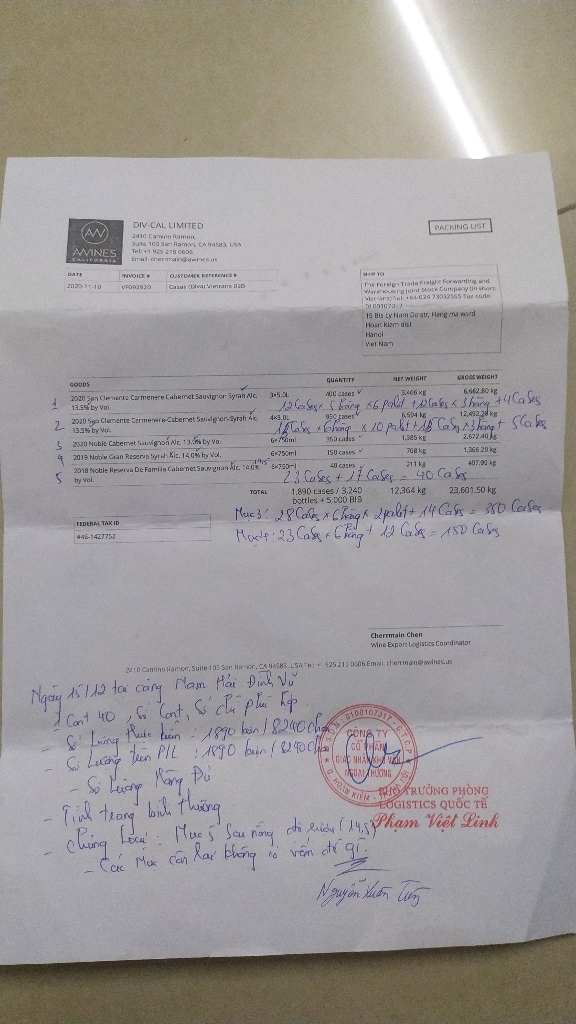 AWINES
CALIFORNIA
DIV-CAL LIMITED
2410 Camino Ramon,
Suite 103 San Ramon, CA 94583, USA
Tel: +1 925 215 0606
Email: cherrmain@awines.us
PACKING LIST
DATE INVOICE # CUSTOMER REFERENCE #
2020-11-10 VF092920 Casas (Diva) Vietrans 02B
SHIP TO
The Foreign Trade Freight Forwarding and
Warehousing Joint Stock Company (in short:
Vietrans) Tel: +84-024 73032555 Tax code:
15 Bis Ly Nam De str, Hang ma ward
Hoan Kiem dist
Hanoi
Viet Nam
GOODS QUANTITY NET WEIGHT GROSS WEIGHT
1 2020 San Clemente Carmenere Cabernet Sauvignon Syrah Alc. 13.5% by Vol. 3×5.0L 400 cases 3,466 kg 6,662.80 kg
12 Cases × 5 hàng × 6 palet + 12 Cases × 3 hàng + 4 Cases
2 2020 San Clemente Carmenere-Cabernet Sauvignon-Syrah Alc. 13.5% by Vol. 4×3.0L 950 cases 6,594 kg 12,492.28 kg
Cases × 6 hàng × 10 palet + Cases × 3 hàng + 5 Cases
3 2020 Noble Cabernet Sauvignon Alc. 13.0% by Vol. 6×750ml 350 cases 1,385 kg 2,672.40 kg
4 2019 Noble Gran Reserva Syrah Alc. 14.0% by Vol. 6×750ml 150 cases 708 kg 1,366.20 kg
5 2018 Noble Reserva De Familia Cabernet Sauvignon Alc. 14.0% by Vol. 14,5 6×750ml 40 cases 211 kg 407.90 kg
23 Cases + 17 Cases = 40 Cases
TOTAL 1,890 cases / 3,240 bottles + 5,000 BIB 12,364 kg 23,601.50 kg
Mục 3: 28 Cases × 6 hàng × 2 palet + 14 Cases = 350 Cases
Mục 4: 23 Cases × 6 hàng + 12 Cases = 150 Cases
FEDERAL TAX ID
#46-1427752
Cherrmain Chen
Wine Export Logistics Coordinator
2410 Camino Ramon, Suite 103 San Ramon, CA 94583, USA Tel: +1 925 215 0606 Email: cherrmain@awines.us
Ngày 15/12 tại cảng Nam Hải Đình Vũ
1 Cont 40, Số Cont, Số chì phù hợp.
- Số lượng thực kiểm: 1890 kiện / 8240 chai
- Số lượng trên P/L: 1890 kiện / 8240 chai
- Số lượng hàng Đủ
- Tình trạng bình thường
- Chủng loại: Mục 5 sau nồng độ rượu (14,5)
- Các Mục còn lại không có vấn đề gì.
M.S.D.N: 0100107317 - C.T.C.P
CÔNG TY
CỔ PHẦN
GIAO NHẬN KHO VẬN
NGOẠI THƯƠNG
Q. HOÀN KIẾM
PHÓ TRƯỞNG PHÒNG
LOGISTICS QUỐC TẾ
Phạm Việt Linh
Nguyễn Xuân